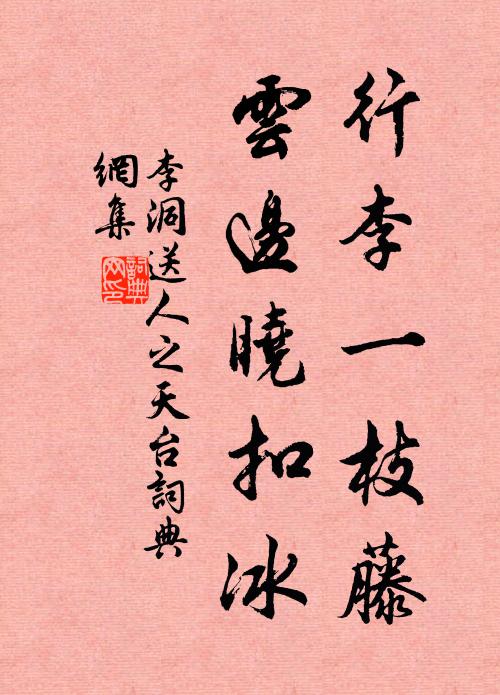 行李一枝藤
雲邊曉扣冰
李洞送人之天台詞典
網集
詞典網印